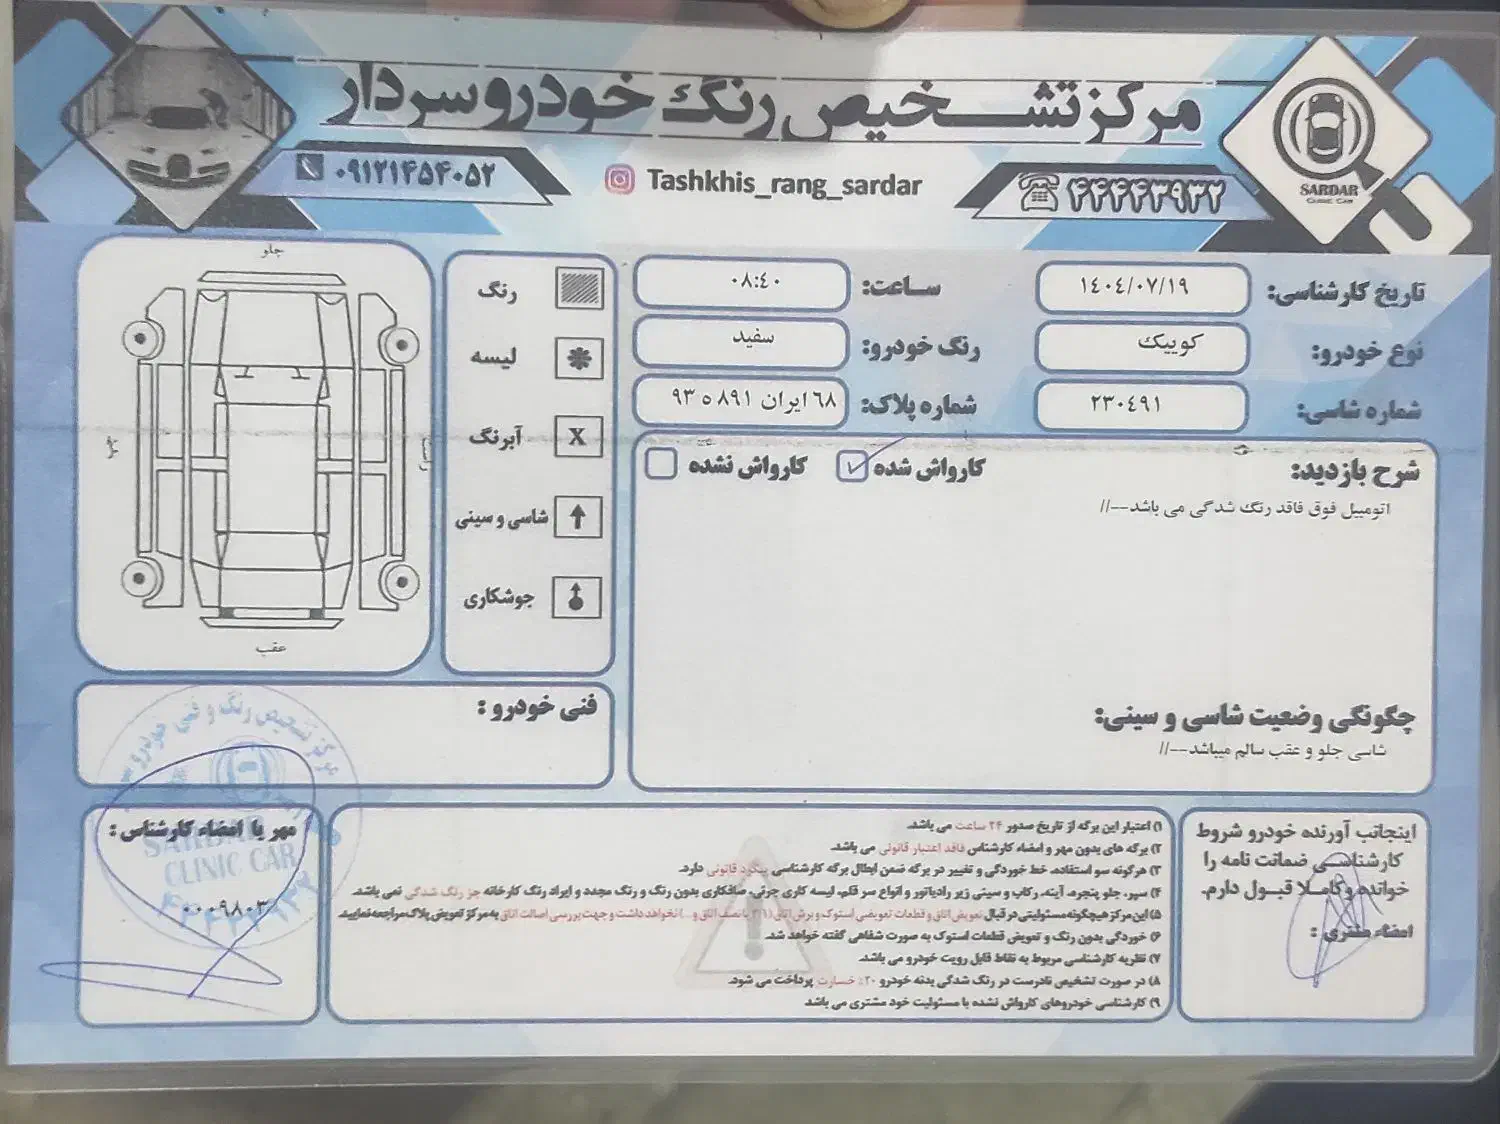 مرکز تشخیص رنگ خودرو سردار
۰۹۱۲۱۴۵۴۰۵۲
Tashkhis_rang_sardar
۴۴۴۴۳۹۳۲
SARDAR
CLINIC CAR
تاریخ کارشناسی: ۱٤۰٤/۰۷/۱۹
ساعت: ۰۸:٤۰
نوع خودرو: کوییک
رنگ خودرو: سفید
شماره شاسی: ۲۳۰٤۹۱
شماره پلاک: ۶۸ ایران ۸۹۱ ه ۹۳
شرح بازدید:
کارواش شده
کارواش نشده
اتومبیل فوق فاقد رنگ شدگی می باشد--//
چگونگی وضعیت شاسی و سینی:
شاسی جلو و عقب سالم میباشد--//
رنگ
لیسه
X آبرنگ
شاسی و سینی
جوشکاری
جلو
عقب
فنی خودرو :
اینجانب آورنده خودرو شروط
کارشناسی ضمانت نامه را
خوانده و کاملا قبول دارم.
امضاء مشتری :
۱) اعتبار این برگه از تاریخ صدور ۲۴ ساعت می باشد.
۲) برگه های بدون مهر و امضاء کارشناس فاقد اعتبار قانونی می باشد.
۳) هرگونه سو استفاده، خط خوردگی و تغییر در برگه ضمن ابطال برگه کارشناسی پیگرد قانونی دارد.
۴) سپر، جلو پنجره، آینه، رکاب و سینی زیر رادیاتور و انواع سر قلم، لیسه کاری جزئی، صافکاری بدون رنگ و رنگ مجدد و ایراد رنگ کارخانه جز رنگ شدگی نمی باشد.
۵) این مرکز هیچگونه مسئولیتی در قبال تعویض اتاق و قطعات تعویضی استوک و برش اتاق (۱/۳ یا نصف اتاق و ...) نخواهد داشت و جهت بررسی اصالت اتاق به مرکز تعویض پلاک مراجعه نمایید.
۶) خوردگی بدون رنگ و تعویض قطعات استوک به صورت شفاهی گفته خواهد شد.
۷) نظریه کارشناسی مربوط به نقاط قابل رویت خودرو می باشد.
۸) در صورت تشخیص نادرست در رنگ شدگی بدنه خودرو ۲۰٪ خسارت پرداخت می شود.
۹) کارشناسی خودروهای کارواش نشده با مسئولیت خود مشتری می باشد
مهر یا امضاء کارشناس :
مرکز تشخیص رنگ و فنی خودرو
CLINIC CAR
۰۰۰۹۸۰۳